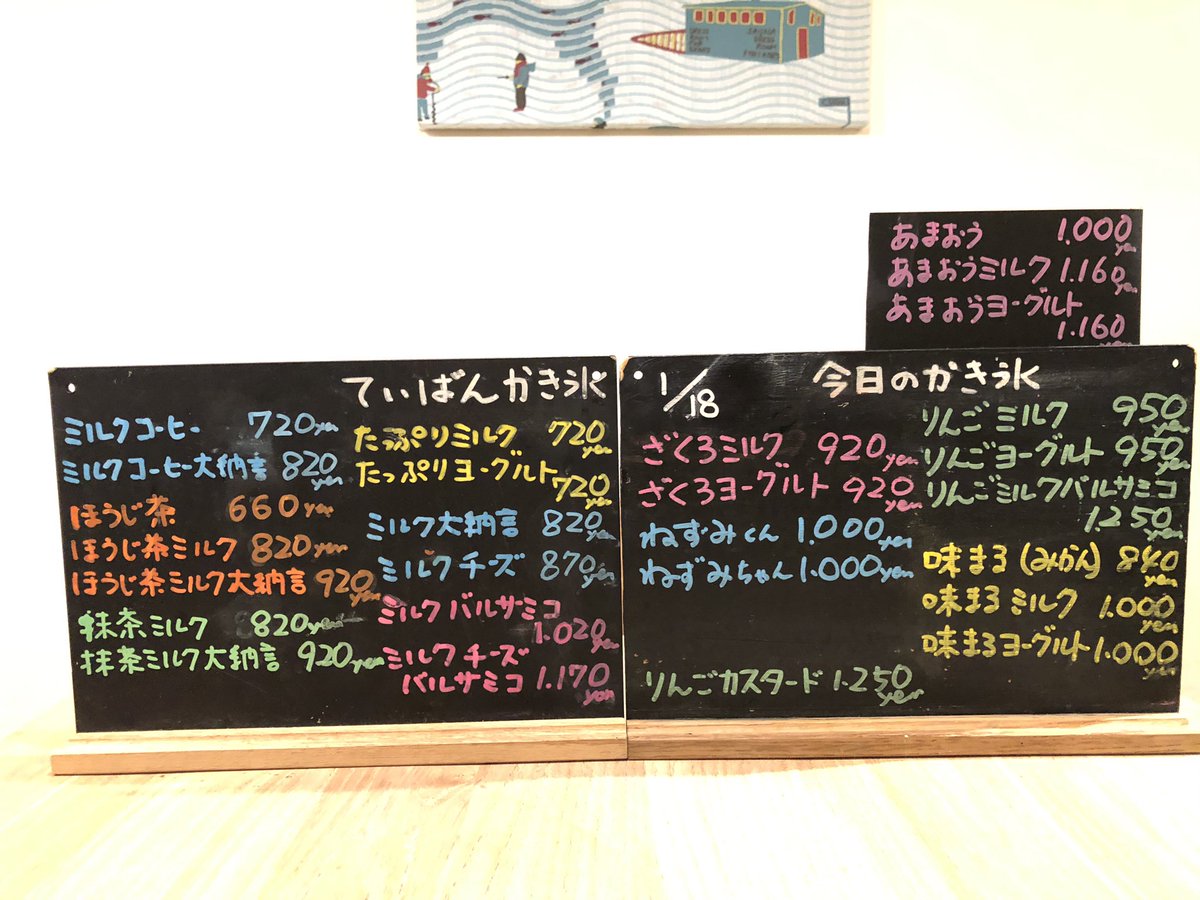 あまおう 1.000 yen
あまおうミルク 1.160 yen
あまおうヨーグルト
1.160 yen
ていばんかき氷
ミルクコーヒー 720 yen
ミルクコーヒー大納言 820 yen
ほうじ茶 660 yen
ほうじ茶ミルク 820 yen
ほうじ茶ミルク大納言 920 yen
抹茶ミルク 820 yen
抹茶ミルク大納言 920 yen
たっぷりミルク 720 yen
たっぷりヨーグルト 720 yen
ミルク大納言 820 yen
ミルクチーズ 870 yen
ミルクバルサミコ
1.020 yen
ミルクチーズ
バルサミコ 1.170 yen
1/18 今日のかき氷
ざくろミルク 920 yen
ざくろヨーグルト 920 yen
ねずみくん 1.000 yen
ねずみちゃん 1.000 yen
りんごカスタード 1.250 yen
りんごミルク 950
りんごヨーグルト 950 yen
りんごミルクバルサミコ
1.250 yen
味まろ(みかん) 840 yen
味まろミルク 1.000 yen
味まろヨーグルト 1.000 yen